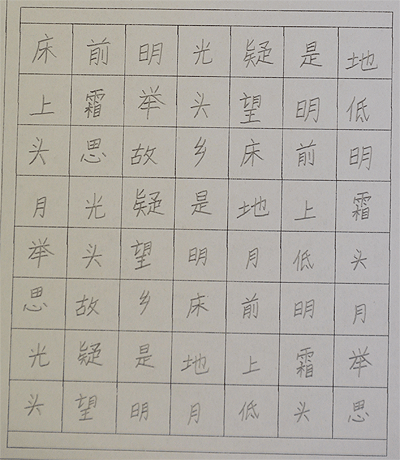 床前明光疑是地
上霜举头望明低
头思故乡床前明
月光疑是地上霜
举头望明月低头
思故乡床前明月
光疑是地上霜举
头望明月低头思